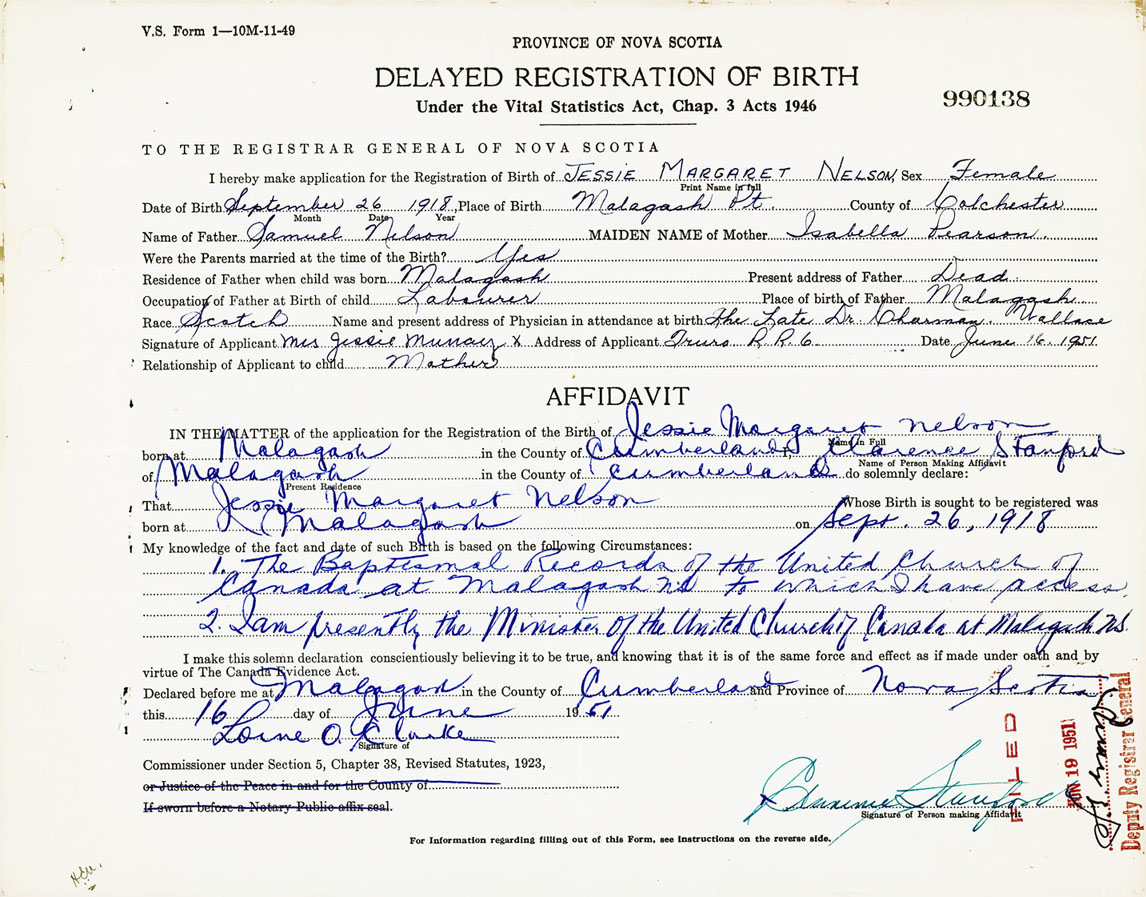 V.S. Form 1—10M-11-49
PROVINCE OF NOVA SCOTIA
DELAYED REGISTRATION OF BIRTH
Under the Vital Statistics Act, Chap. 3 Acts 1946
990138
TO THE REGISTRAR GENERAL OF NOVA SCOTIA
I hereby make application for the Registration of Birth of JESSIE MARGARET NELSON, Sex Female
Print Name in full
Date of Birth September 26 1918, Place of Birth Malagash Pt. County of Colchester
Month Date Year
Name of Father Samuel Nelson MAIDEN NAME of Mother Isabella Pearson
Were the Parents married at the time of the Birth? Yes
Residence of Father when child was born Malagash Present address of Father Dead
Occupation of Father at Birth of child Labourer Place of birth of Father Malagash
Race Scotch Name and present address of Physician in attendance at birth the Late Dr. Charman. Wallace
Signature of Applicant Mrs Jessie x Address of Applicant Truro R.R.6 Date June 16. 1951
Relationship of Applicant to child Mother
AFFIDAVIT
IN THE MATTER of the application for the Registration of the Birth of Jessie Margaret Nelson
Name in Full
born at Malagash in the County of Cumberland Clarence Stanford
Name of Person Making Affidavit
of Malagash in the County of Cumberland do solemnly declare:
Present Residence
That Jessie Margaret Nelson Whose Birth is sought to be registered was
born at Malagash on Sept. 26, 1918
My knowledge of the fact and date of such Birth is based on the following Circumstances:
1. The Baptismal Records of the United Church of
Canada at Malagash N.S. to which I have access.
2. I am presently the Minister of the United Church of Canada at Malagash N.S.
I make this solemn declaration conscientiously believing it to be true, and knowing that it is of the same force and effect as if made under oath and by
virtue of The Canada Evidence Act.
Declared before me at Malagash in the County of Cumberland and Province of Nova Scotia
this 16 day of June 1951
Lorne O. Clarke
Signature of
Commissioner under Section 5, Chapter 38, Revised Statutes, 1923,
or Justice of the Peace in and for the County of
If sworn before a Notary Public affix seal.
Clarence Stanford
Signature of Person making Affidavit
FILED
JUN 19 1951
Deputy Registrar General
For Information regarding filling out of this Form, see instructions on the reverse side.